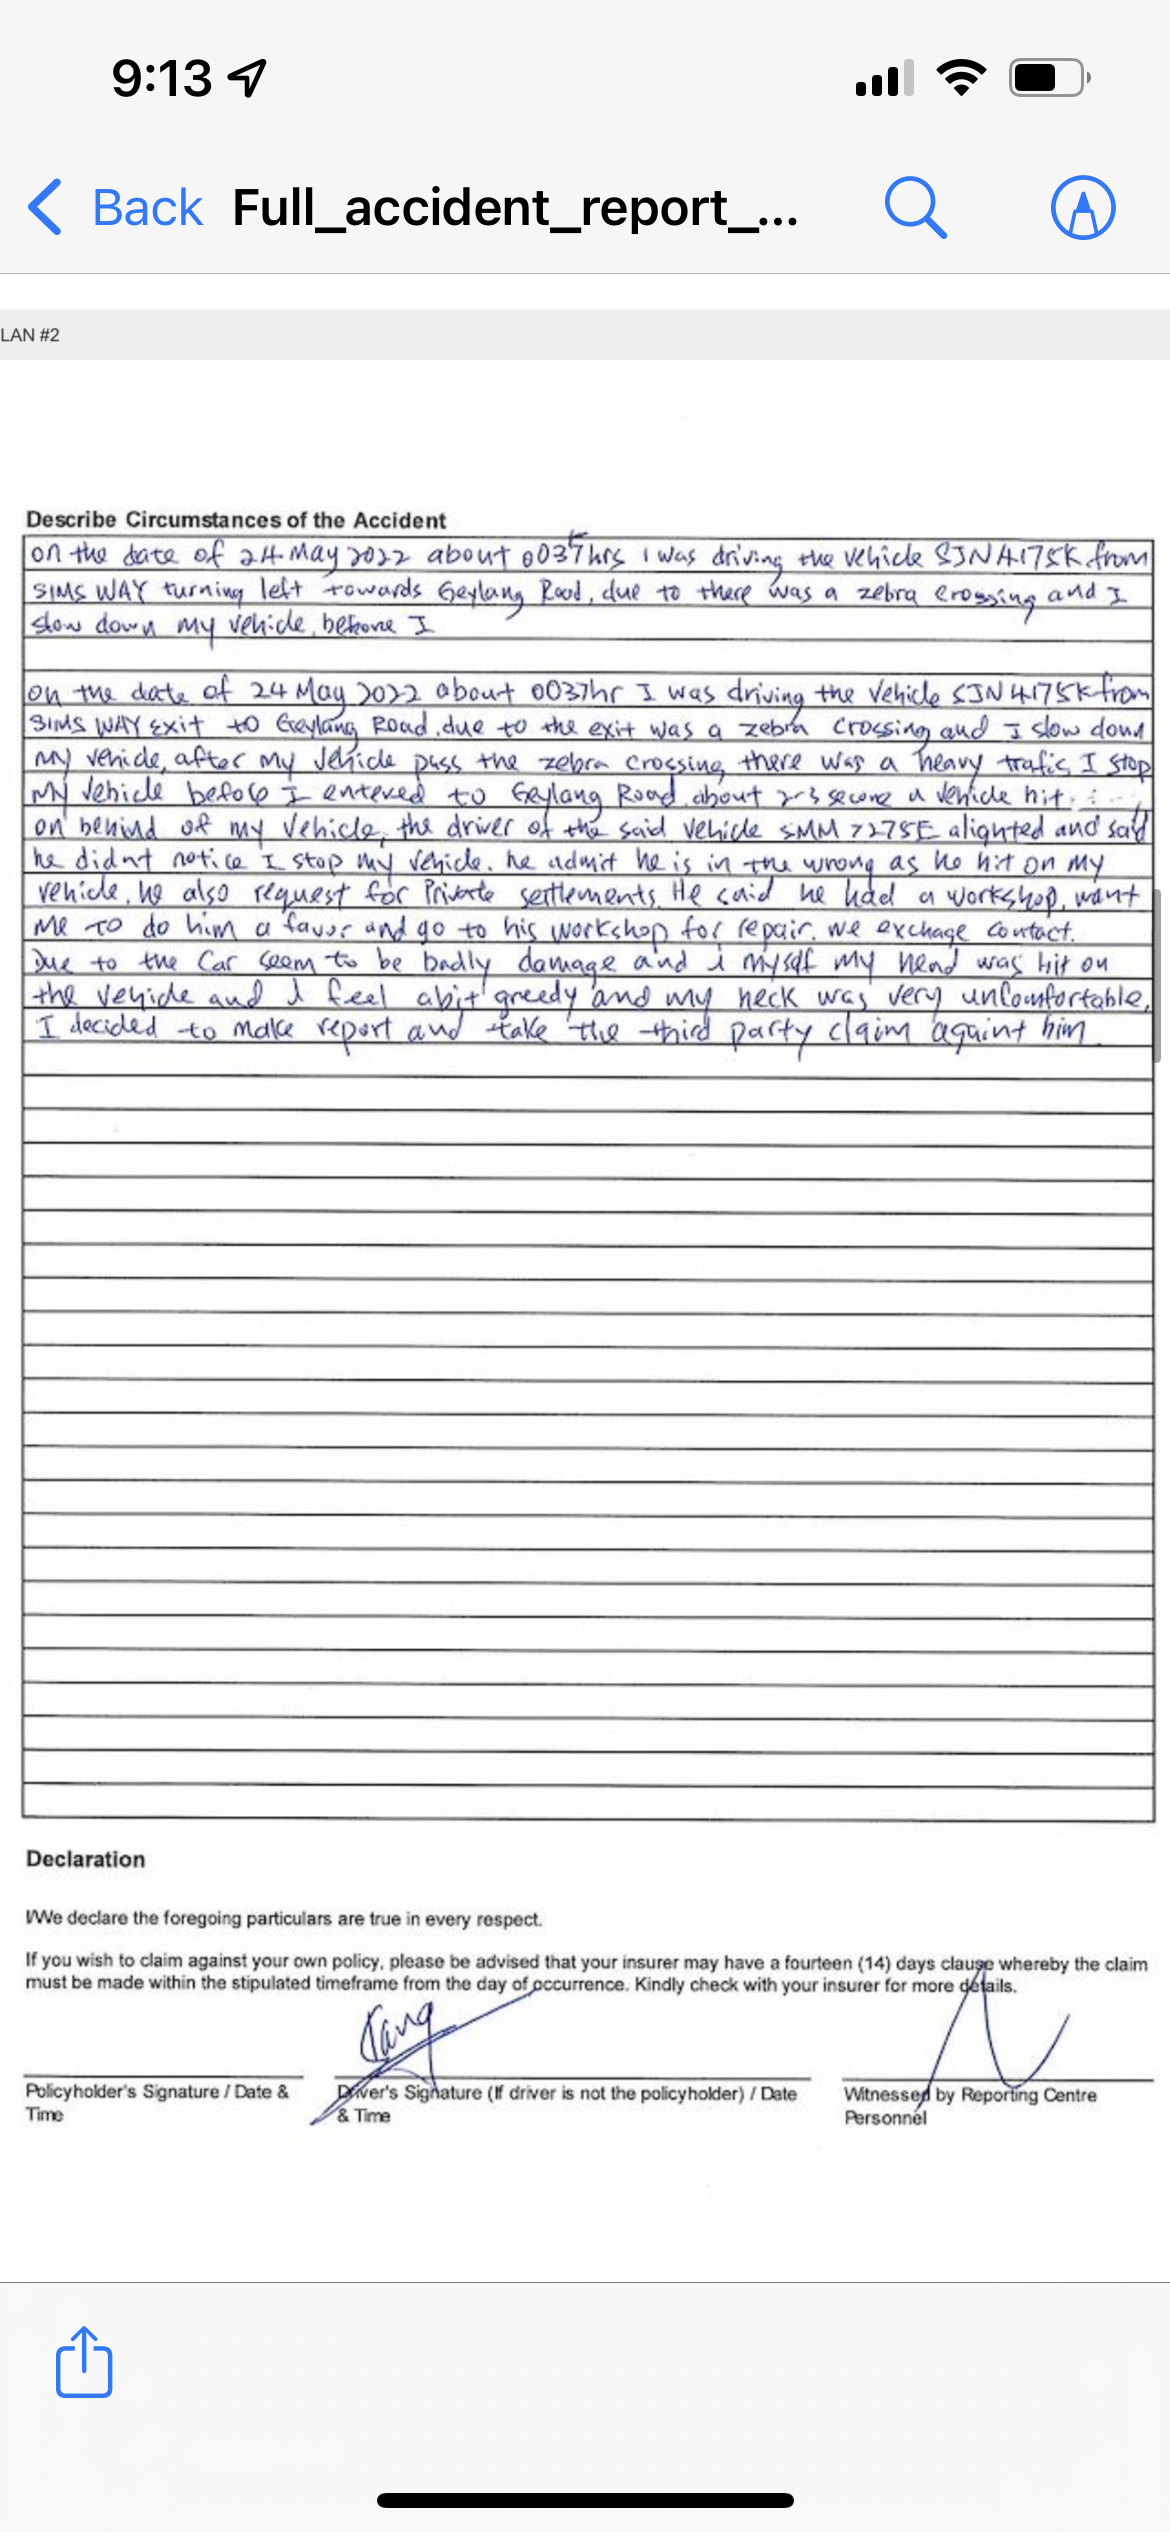 9:13
Back Full_accident_report_...
LAN #2
Describe Circumstances of the Accident
on the date of 24 May 2022 about 0037hrs I was driving the vehicle SJN4175K from
SIMS WAY turning left towards Geylang Road, due to there was a zebra crossing and I
slow down my vehicle, before I
on the date of 24 May 2022 about 0037hr I was driving the vehicle SJN4175K from
SIMS WAY Exit to Geylang Road, due to the exit was a zebra crossing and I slow down
my vehicle, after my vehicle pass the zebra crossing, there was a heavy trafic, I stop
my vehicle before I entered to Geylang Road, about 2-3 secone a vehicle hit
on behind of my vehicle, the driver of the said vehicle SMM7275E alighted and said
he didnt notice I stop my vehicle. he admit he is in the wrong as he hit on my
vehicle, he also request for Private settlements. He said he had a workshop, want
me to do him a favor and go to his workshop for repair. we exchage contact.
Due to the car seem to be badly damage and i myself my head was hit on
the vehicle and I feel abit greedy and my neck was very uncomfortable,
I decided to make report and take the third party claim againt him
Declaration
I/We declare the foregoing particulars are true in every respect.
If you wish to claim against your own policy, please be advised that your insurer may have a fourteen (14) days clause whereby the claim
must be made within the stipulated timeframe from the day of occurrence. Kindly check with your insurer for more details.
Policyholder's Signature / Date &
Time
Driver's Signature (If driver is not the policyholder) / Date
& Time
Witnessed by Reporting Centre
Personnel